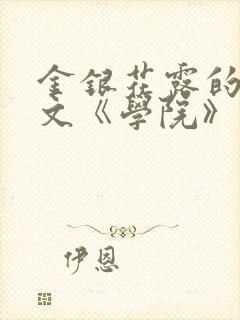 金銀花露的
文《學院》
伊恩